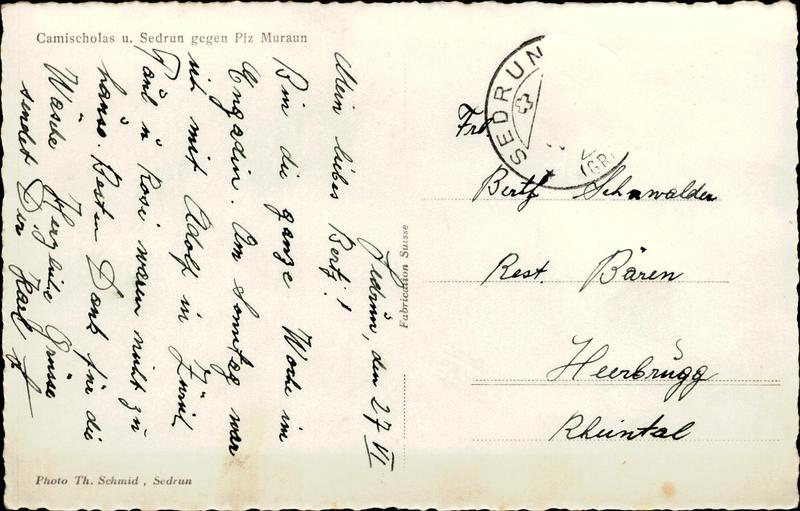 Camischolas u. Sedrun gegen Piz Muraun
Sedrun, den 27 VI
Mein liebes Bertj!
Bin die ganze Woche im
Engadin. Am Sonntag war
ich mit Adolf in Zürich
Paul u Rosi waren nicht zu
hause. Besten Dank für die
Wäsche Herzliche Grüsse
sendet Dir Karl
Photo Th. Schmid, Sedrun
Fabrication Suisse
SEDRUN
(GR)
Frl
Bertj Schawalder
Rest. Bären
Heerbrugg
Rheintal